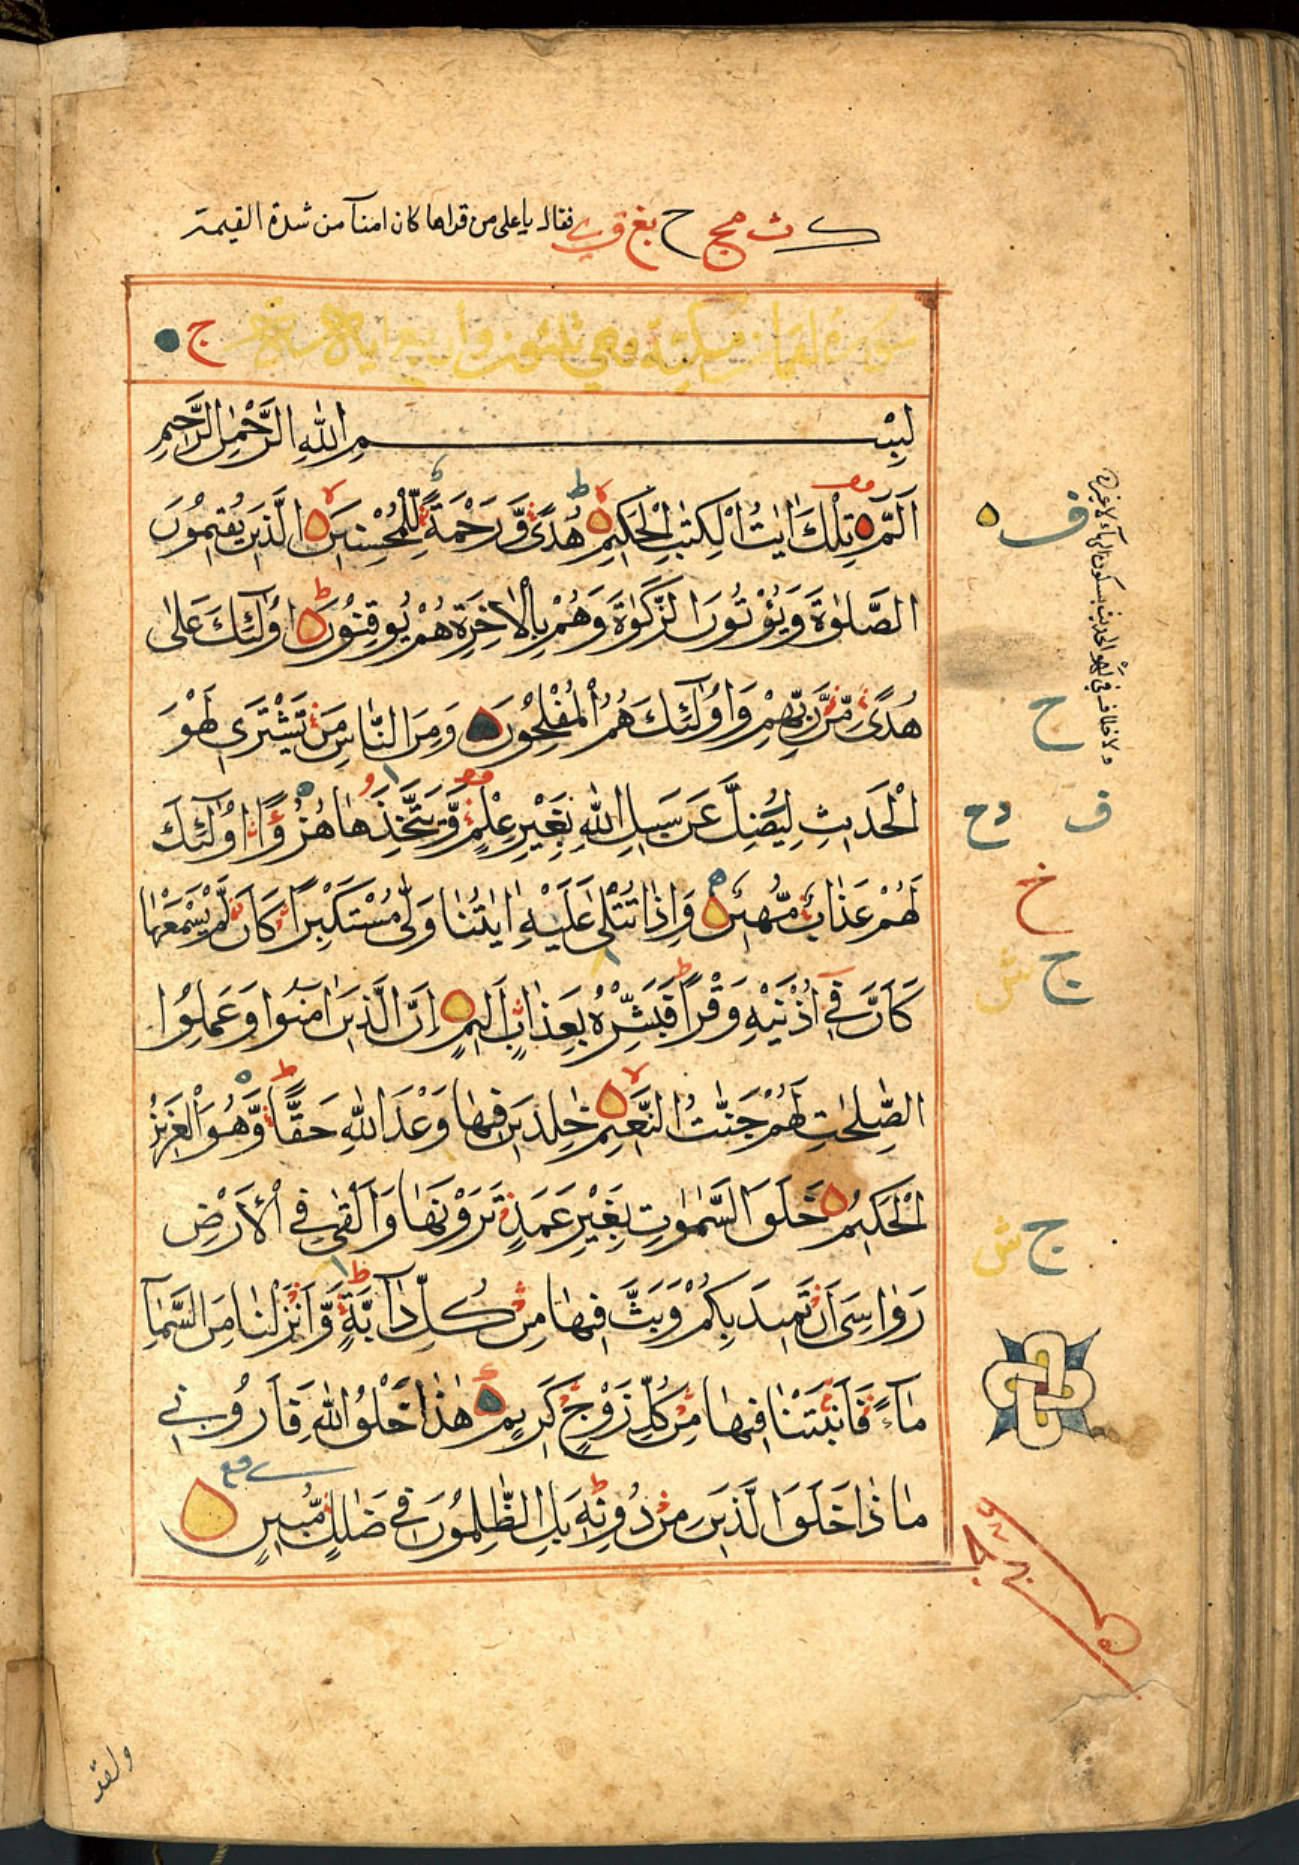 ك ث مج ح بغ ق ي فقال يا على من قراها كان امنا من شدة القيمة
سورة لقمان مكية وهي ثلثون واربع اية ج
بِسْمِ اللّٰهِ الرَّحْمٰنِ الرَّحِيمِ
الٓمّٓ تِلْكَ اٰيٰتُ الْكِتٰبِ الْحَكِيمِ هُدًى وَّرَحْمَةً لِّلْمُحْسِنِينَ الَّذِينَ يُقِيمُونَ
الصَّلٰوةَ وَيُؤْتُونَ الزَّكٰوةَ وَهُمْ بِالْاٰخِرَةِ هُمْ يُوقِنُونَ اُولٰٓئِكَ عَلٰى
هُدًى مِّنْ رَّبِّهِمْ وَاُولٰٓئِكَ هُمُ الْمُفْلِحُونَ وَمِنَ النَّاسِ مَنْ يَّشْتَرِى لَهْوَ
الْحَدِيثِ لِيُضِلَّ عَنْ سَبِيلِ اللّٰهِ بِغَيْرِ عِلْمٍ وَّيَتَّخِذَهَا هُزُوًا اُولٰٓئِكَ
لَهُمْ عَذَابٌ مُّهِينٌ وَاِذَا تُتْلٰى عَلَيْهِ اٰيٰتُنَا وَلّٰى مُسْتَكْبِرًا كَاَنْ لَّمْ يَسْمَعْهَا
كَاَنَّ فِىٓ اُذْنَيْهِ وَقْرًا فَبَشِّرْهُ بِعَذَابٍ اَلِيمٍ اِنَّ الَّذِينَ اٰمَنُوا وَعَمِلُوا
الصّٰلِحٰتِ لَهُمْ جَنّٰتُ النَّعِيمِ خٰلِدِينَ فِيهَا وَعْدَ اللّٰهِ حَقًّا وَّهُوَ الْعَزِيزُ
الْحَكِيمُ خَلَقَ السَّمٰوٰتِ بِغَيْرِ عَمَدٍ تَرَوْنَهَا وَاَلْقٰى فِى الْاَرْضِ
رَوَاسِىَ اَنْ تَمِيدَ بِكُمْ وَبَثَّ فِيهَا مِنْ كُلِّ دَآبَّةٍ وَّاَنْزَلْنَا مِنَ السَّمَآ
مَآءً فَاَنْبَتْنَا فِيهَا مِنْ كُلِّ زَوْجٍ كَرِيمٍ هٰذَا خَلْقُ اللّٰهِ فَاَرُونِى
مَاذَا خَلَقَ الَّذِينَ مِنْ دُونِهِ بَلِ الظّٰلِمُونَ فِى ضَلٰلٍ مُّبِينٍ
ف
ولا خلاف في لهو الحديث بسكون الهاء لا غيره
ح
ف دح
خ
ج ش
ج ش
ولقد